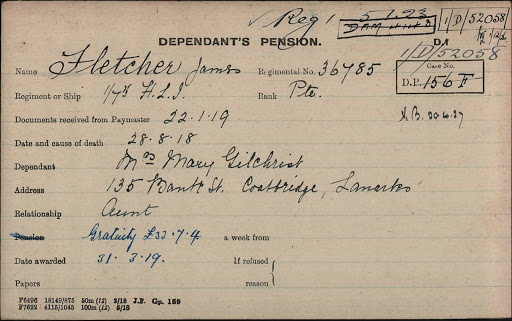 Reg 5/1.93 1/D/52058
DEPENDANT'S PENSION.
1/D/52058
Name Fletcher James Regimental No. 36785
Case No.
D.P. 156 F
Regiment or Ship 1/7th H.L.I. Rank Pte.
Documents received from Paymaster 22.1.19
Date and cause of death 28.8.18
Dependant Mrs Mary Gilchrist
Address 135 Bank St. Coatbridge, Lanarks
Relationship Aunt
Pension Gratuity £33.7.4 a week from
Date awarded 31.3.19. If refused
Papers reason
F6496 18149/875 50m (12) 2/18 J.P. Gp. 159
F7622 4115/1043 100m (12) 5/18